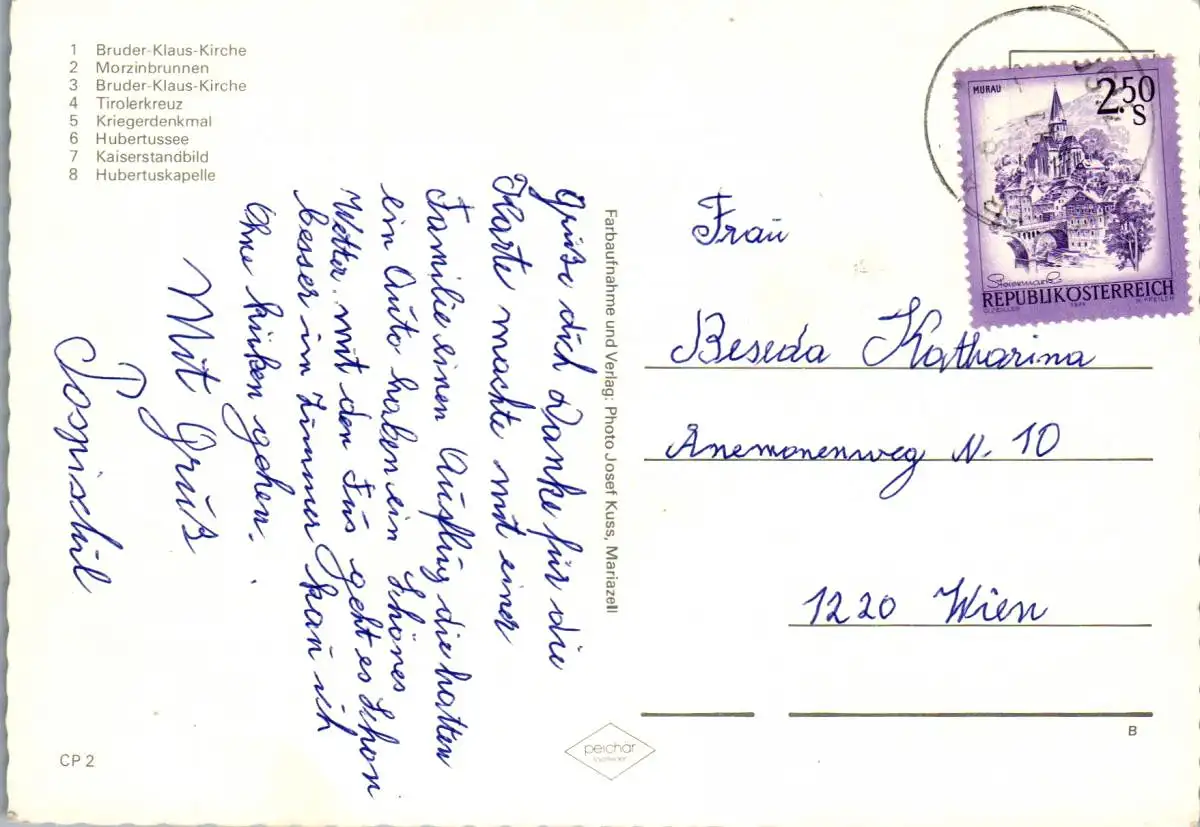 1 Bruder-Klaus-Kirche
2 Morzinbrunnen
3 Bruder-Klaus-Kirche
4 Tirolerkreuz
5 Kriegerdenkmal
6 Hubertussee
7 Kaiserstandbild
8 Hubertuskapelle
Grüße dich Danke für die
Karte machte mit einer
Familie einen Ausflug die hatten
ein Auto haben ein Schönes
Wetter. mit den Fus geht es Schon
besser im Zimmer kan ich
Ohne hinken gehen.
Mit Gruß
Pospischil
Farbaufnahme und Verlag: Photo Josef Kuss, Mariazell
MURAU
2.50
S
Steiermark
REPUBLIK ÖSTERREICH
Frau
Beseda Katharina
Anemonenweg N. 10
1220 Wien
CP 2
peichär
B